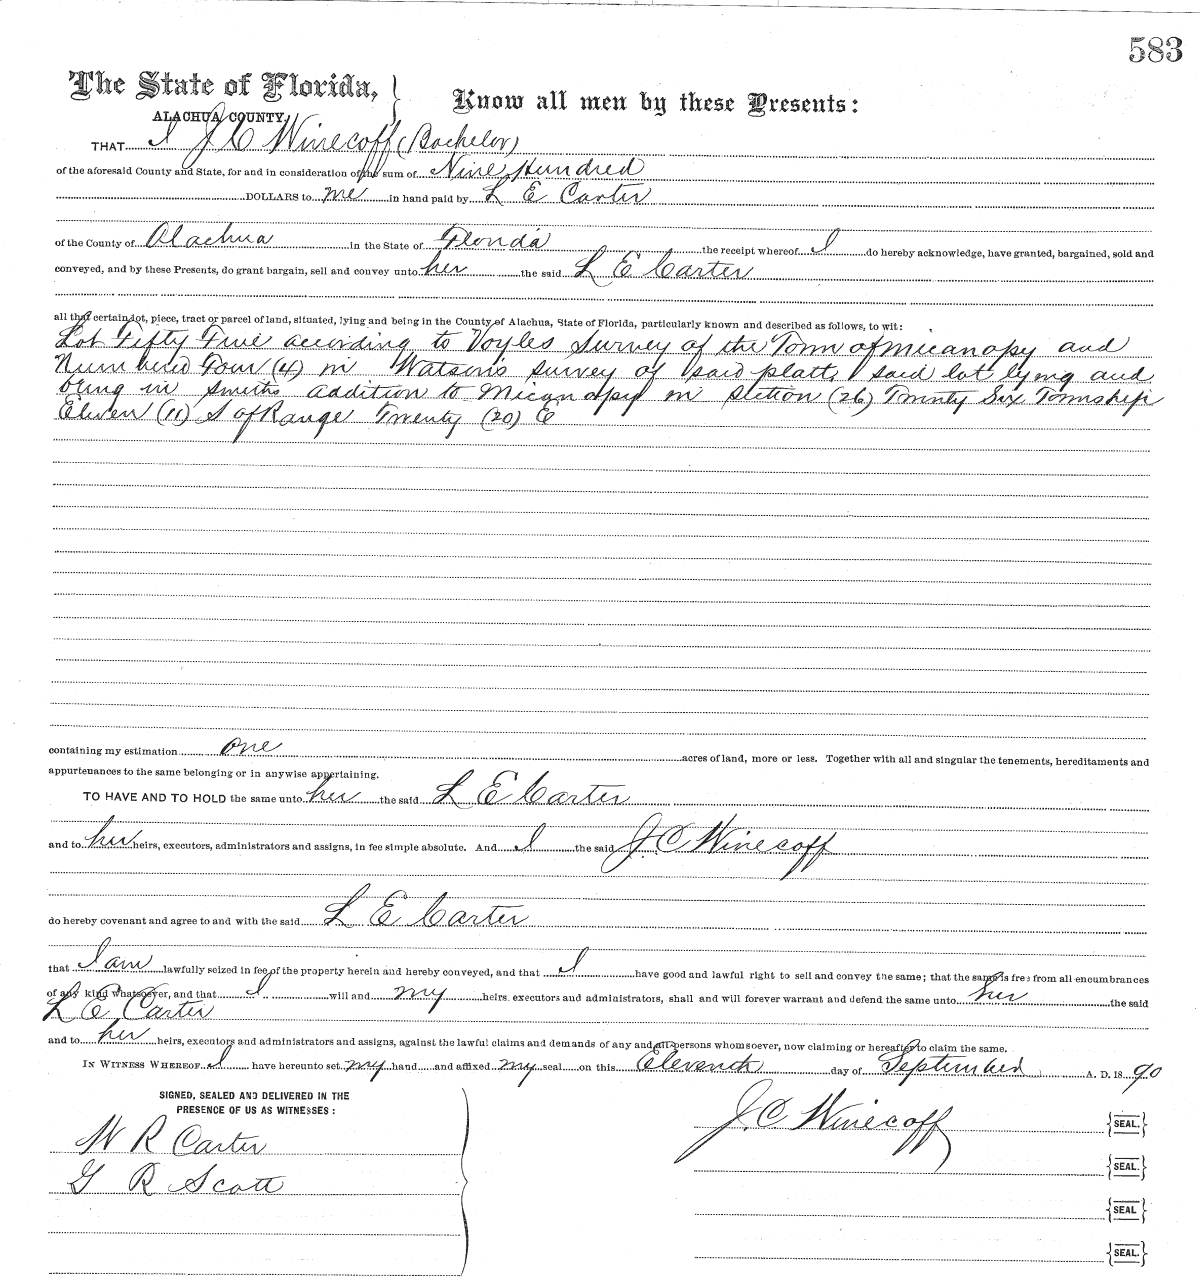 583
The State of Florida, } Know all men by these Presents:
ALACHUA COUNTY.
THAT I J C Winecoff (Bachelor)
of the aforesaid County and State, for and in consideration of the sum of Nine Hundred
DOLLARS to me in hand paid by L E Carter
of the County of Alachua in the State of Florida the receipt whereof I do hereby acknowledge, have granted, bargained, sold and
conveyed, and by these Presents, do grant bargain, sell and convey unto her the said L E Carter
all that certain lot, piece, tract or parcel of land, situated, lying and being in the County of Alachua, State of Florida, particularly known and described as follows, to wit:
Lot Fifty Five according to Voyles Survey of the Town of Micanopy and
Numbered Four (4) in Watson's survey of said platt, said lot lying and
being in Smiths addition to Micanopy in Section (26) Twenty Six Township
Eleven (11) S of Range Twenty (20) E
containing my estimation one acres of land, more or less. Together with all and singular the tenements, hereditaments and
appurtenances to the same belonging or in anywise appertaining.
TO HAVE AND TO HOLD the same unto her the said L E Carter
and to her heirs, executors, administrators and assigns, in fee simple absolute. And I the said J. C Winecoff
do hereby covenant and agree to and with the said L E Carter
that I am lawfully seized in fee of the property herein and hereby conveyed, and that I have good and lawful right to sell and convey the same; that the same is free from all encumbrances
of any kind whatsoever, and that I will and my heirs executors and administrators, shall and will forever warrant and defend the same unto her the said
L E Carter
and to her heirs, executors and administrators and assigns, against the lawful claims and demands of any and all persons whomsoever, now claiming or hereafter to claim the same.
IN WITNESS WHEREOF I have hereunto set my hand and affixed my seal on this Eleventh day of September A. D. 1890
SIGNED, SEALED AND DELIVERED IN THE
PRESENCE OF US AS WITNESSES:
W R Carter
G R Scott
J. C Winecoff {SEAL.}
{SEAL.}
{SEAL}
{SEAL.}